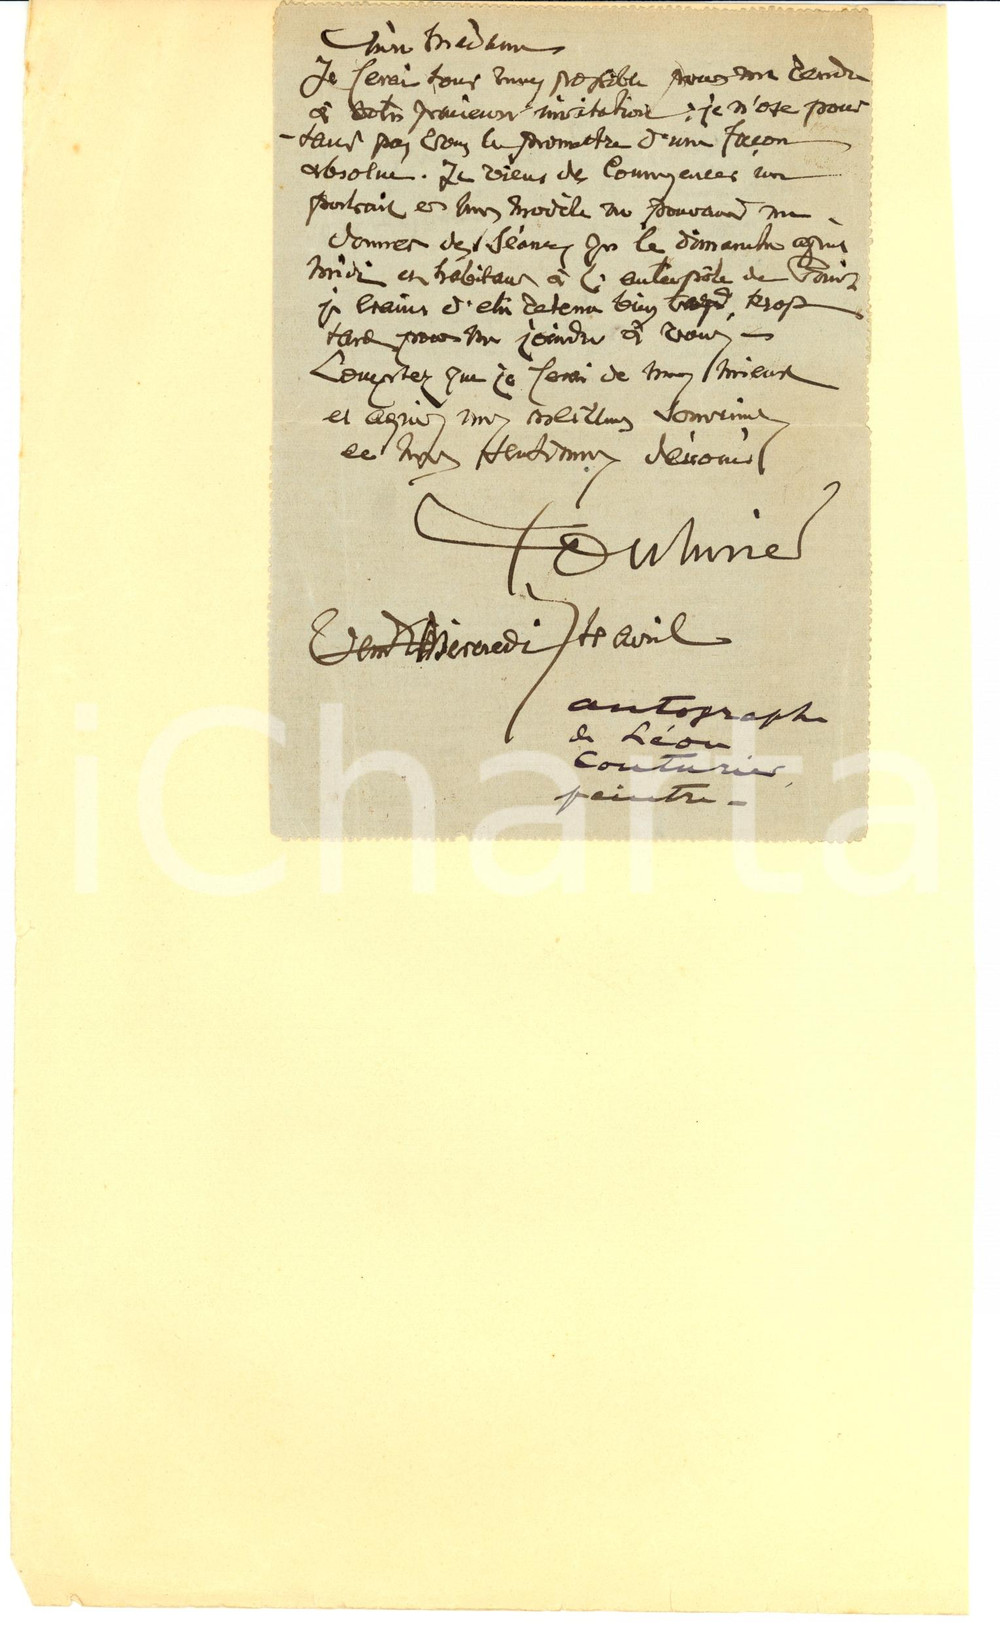 Chère Madame
Je ferai tout mon possible pour me rendre
à votre gracieuse invitation ; je n'ose pour
-tant pas vous le promettre d'une façon
absolue. Je viens de commencer un
portrait et mon modèle ne pouvant me
donner des séances que le dimanche après
midi et habitant à l'autre pôle de Paris
je crains d'être retenu bien tard, trop
tard pour me joindre à vous —
Comptez que je ferai de mon mieux
et agréez mes meilleurs souvenirs
et mes sentiments dévoués
L Couturier
Mercredi avril
autographe
de Léon
Couturier,
peintre -
iCharta